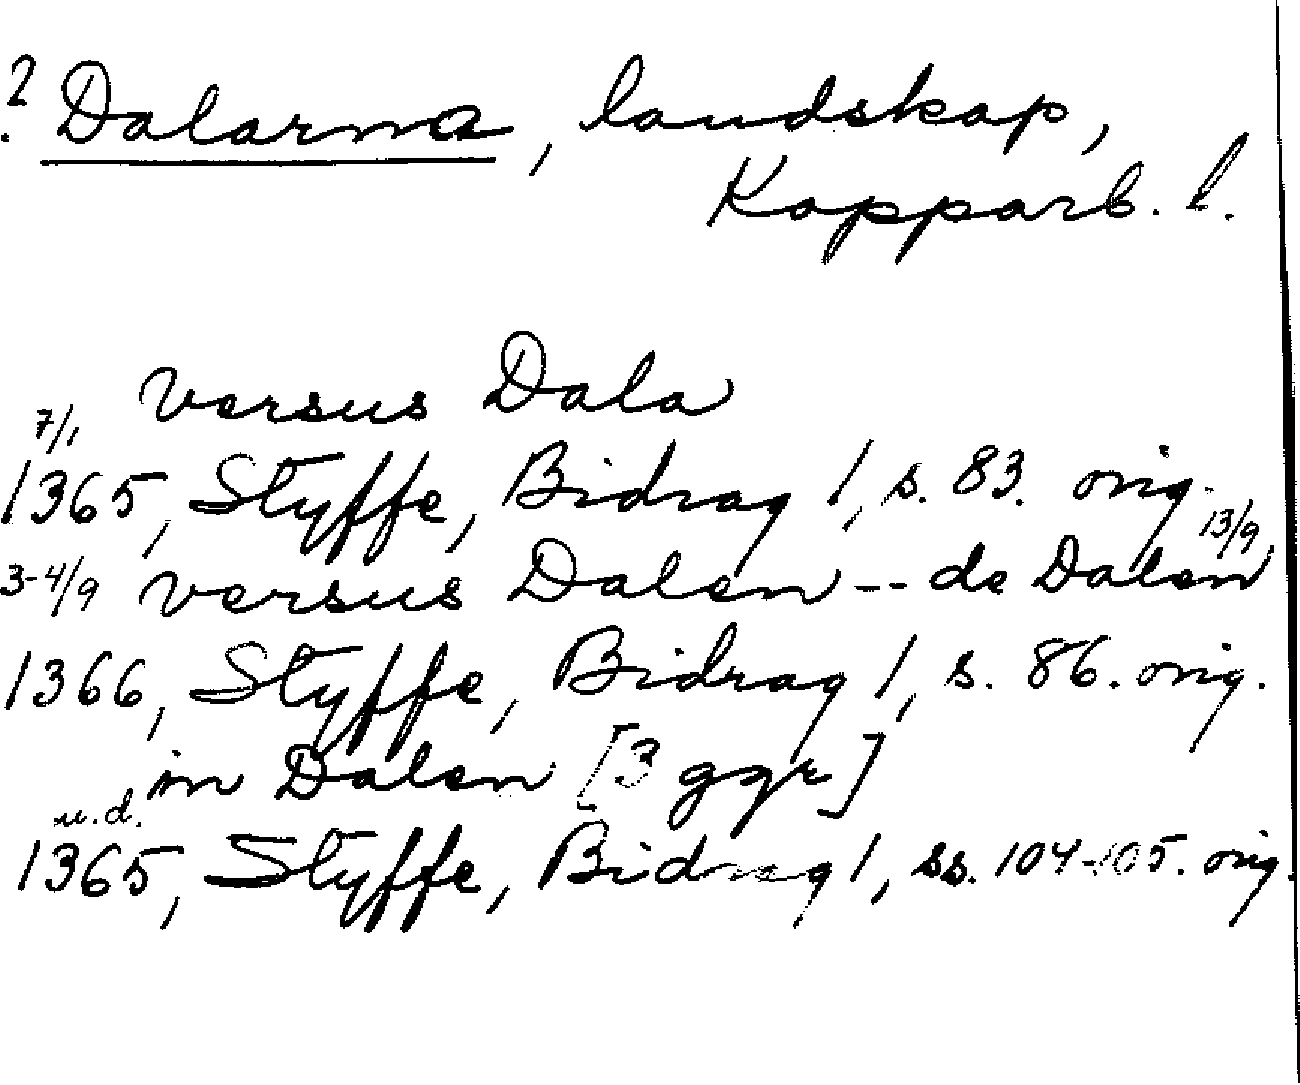 ? Dalarna, landskap,
Kopparb. l.
versus Dala
7/1
1365, Styffe, Bidrag 1, s. 83. orig.
13/9
3-4/9 versus Dalen -- de Dalen
1366, Styffe, Bidrag 1, s. 86. orig.
in Dalen [3 ggr]
u.d.
1365, Styffe, Bidrag 1, ss. 104-105. orig.